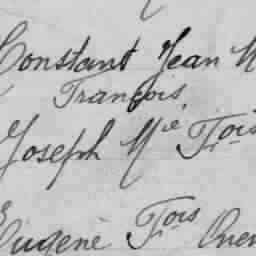 Constant Jean M
François,
Joseph Mie Fois
Eugène Fois